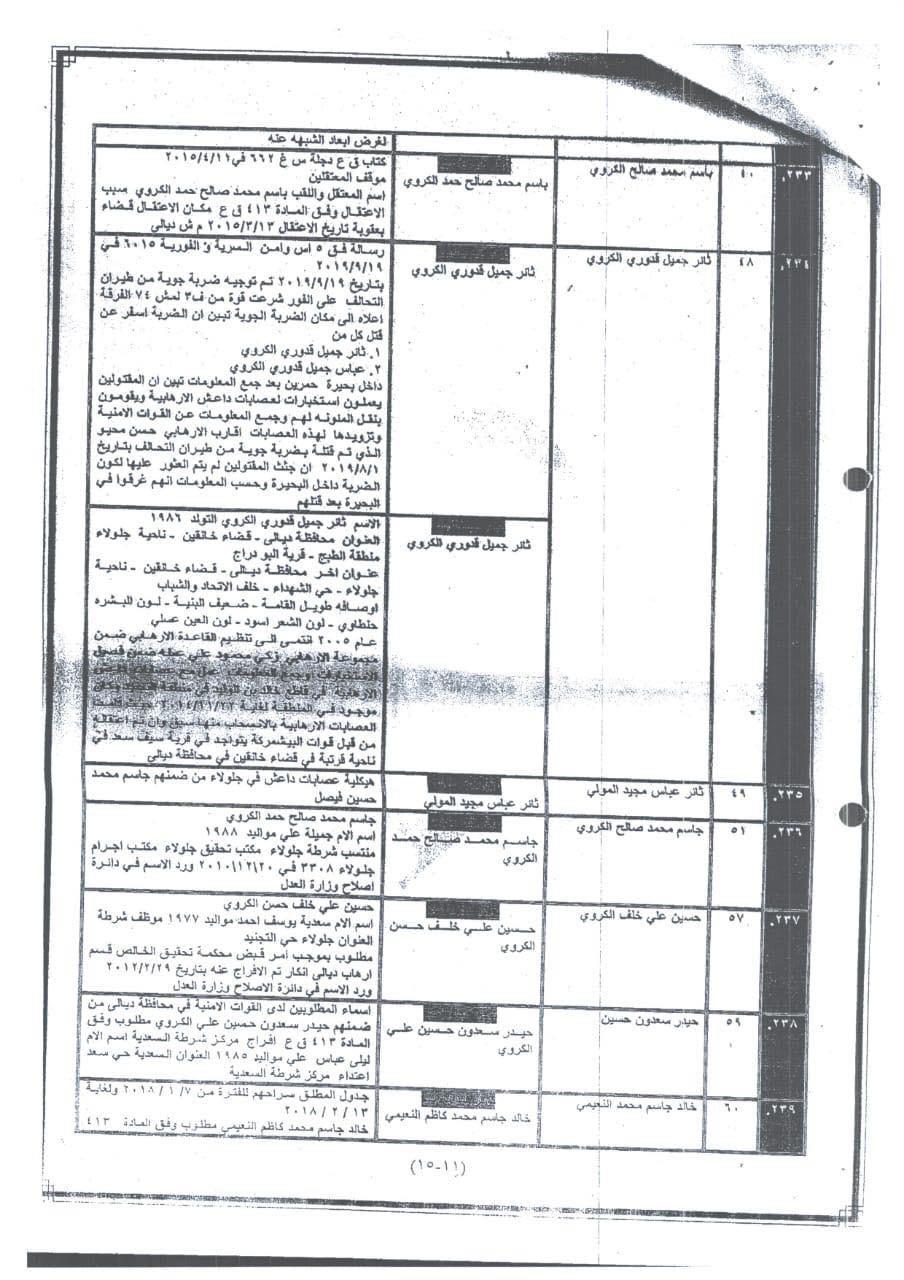 لغرض ابعاد الشبهه عنه
٢٣٣.
٤٠
باسم محمد صالح الكروي
باسم محمد صالح حمد الكروي
كتاب ق ع دجلة س غ ٦٦٢ في ٢٠١٥/٤/١١
موقف المعتقلين
اسم المعتقل واللقب باسم محمد صالح حمد الكروي سبب
الاعتقال وفق المادة ٤١٣ ق ع مكان الاعتقال قضاء
بعقوبة تاريخ الاعتقال ٢٠١٥/٣/١٣ م ش ديالى
٢٣٤.
٤٨
ثائر جميل قدوري الكروي
ثائر جميل قدوري الكروي
رسالة فق ٥ اس وامن السرية و الفورية ٦٠١٥ في
٢٠١٩/٩/١٩
بتاريخ ٢٠١٩/٩/١٩ تم توجيه ضربة جوية من طيران
التحالف على الفور شرعت قوة من ف٣ لمش ٧٤ الفرقة
اعلاه الى مكان الضربة الجوية تبين ان الضربة اسفر عن
قتل كل من
١. ثائر جميل قدوري الكروي
٢. عباس جميل قدوري الكروي
داخل بحيرة حمرين بعد جمع المعلومات تبين ان المقتولين
يعملون استخبارات لعصابات داعش الارهابية ويقومون
بنقل المئونه لهم وجمع المعلومات عن القوات الامنية
وتزويدها لهذه العصابات اقارب الارهابي حسن محيو
الذي تم قتلة بضربة جوية من طيران التحالف بتاريخ
٢٠١٩/٨/١ ان جثث المقتولين لم يتم العثور عليها لكون
الضربة داخل البحيرة وحسب المعلومات انهم غرقوا في
البحيرة بعد قتلهم
ثائر جميل قدوري الكروي
الاسم ثائر جميل قدوري الكروي التولد ١٩٨٦
العنوان محافظة ديالى - قضاء خانقين - ناحية جلولاء
منطقة الطبج - قرية البو دراج
عنوان اخر محافظة ديالى - قضاء خانقين - ناحية
جلولاء - حي الشهداء - خلف الاتحاد والشباب
اوصافه طويل القامة - ضعيف البنية - لون البشره
حنطاوي - لون الشعر اسود - لون العين عسلي
عام ٢٠٠٥ انتمى الى تنظيم القاعدة الارهابي ضمن
مجموعة الارهابي زكي محمود علي عطه ضمن فصيل
الاستخبارات وجمع المعلومات عمل مع عصابات داعش
الارهابية في قاطع خالد بن الوليد في منطقة
موجود في المنطقة لغاية ٢٠١٤/١١/٢٣ حيث قامت
العصابات الارهابية بالانسحاب منها سبق وان تم اعتقاله
من قبل قوات البيشمركة يتواجد في قرية سيف سعد في
ناحية قرتبة في قضاء خانقين في محافظة ديالى
٢٣٥.
٤٩
ثائر عباس مجيد المولي
ثائر عباس مجيد المولي
هيكلية عصابات داعش في جلولاء من ضمنهم جاسم محمد
حسين فيصل
٢٣٦.
٥١
جاسم محمد صالح الكروي
جاسم محمد صالح حمد
الكروي
جاسم محمد صالح حمد الكروي
اسم الام جميلة علي مواليد ١٩٨٨
منتسب شرطة جلولاء مكتب تحقيق جلولاء مكتب اجرام
جلولاء ٣٣٠٨ في ٢٠\١٢\٢٠١٠ ورد الاسم في دائرة
اصلاح وزارة العدل
٢٣٧.
٥٧
حسين علي خلف الكروي
حسين علي خلف حسن
الكروي
حسين علي خلف حسن الكروي
اسم الام سعدية يوسف احمد مواليد ١٩٧٧ موظف شرطة
العنوان جلولاء حي التجنيد
مطلوب بموجب امر قبض محكمة تحقيق الخالص قسم
ارهاب ديالى انكار تم الافراج عنه بتاريخ ٢٠١٢/٢/٢٩
ورد الاسم في دائرة الاصلاح وزارة العدل
٢٣٨.
٥٩
حيدر سعدون حسين
حيدر سعدون حسين علي
الكروي
اسماء المطلوبين لدى القوات الامنية في محافظة ديالى من
ضمنهم حيدر سعدون حسين علي الكروي مطلوب وفق
المادة ٤١٣ ق ع افراج مركز شرطة السعدية اسم الام
ليلى عباس علي مواليد ١٩٨٥ العنوان السعدية حي سعد
اعتداء مركز شرطة السعدية
٢٣٩.
٦٠
خالد جاسم محمد النعيمي
خالد جاسم محمد كاظم النعيمي
جدول المطلق سراحهم للفترة من ٧ / ١ / ٢٠١٨ ولغاية
١٣ / ٢ / ٢٠١٨
خالد جاسم محمد كاظم النعيمي مطلوب وفق المادة ٤١٣
(١١-١٥)